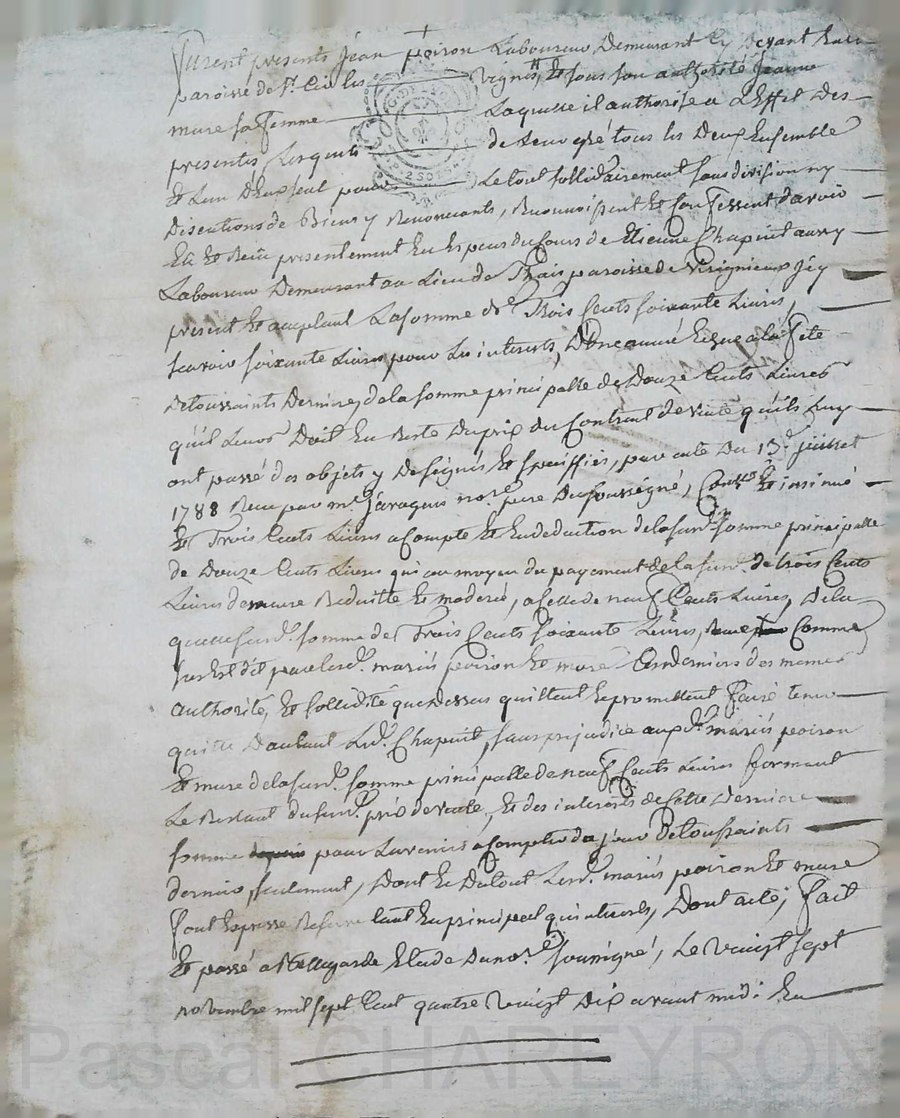 furent presents jean poiron Laboureur, Demeurant
paroisse de St. Cir les vignes, et sous son authorité jeanne
mure sa femme Laquelle il authorise a L'effet des
presentes, Lesquels de leur gré tous les Deux Ensemble
et L'un D'eux seul pour Le tout sollidairement sans division ny
Discutions de Biens y Renonceants, Reconnoissent et Confessent d'avoir
Eû et Reçu presentement En Especes du Cours de Etienne Chapuit
Laboureur Demeurant au Lieu de Thais paroisse de
present et acceptant La somme de Trois Cents soixante Livres,
scavoir soixante Livres pour Les interests D'une année Echue a la fete
de toussaints Derniere, de la somme principalle de Douze Cents Livres
qu'il Leurs Doit En Reste Du prix du Contrat de vente qu'ils Luy
ont passé des objets y Designés, et speciffiés, par acte Du 13e. juillet
1788 Receu par me. jaraques nore. pere Du soussigné, Conttrollé et insinué
Et Trois Cents Livres a Compte et En deduction de la surde. somme principalle
de Douze Cents Livres qui au moyen du payement de la surde. de trois Cents
Livres demeure Reduitte et moderée, a Celle de neuf Cents Livres, De la
quelle surde. somme de Trois Cents soixante Livres, Comme
sus Est dit par lesd. mariés poiron et mure Ces derniers des memes
authorité, et sollidité que dessus quittent et promettent faire tenir
quitte D'autant Led. Chapuit, sans prejudice auxd. mariés poiron
Et mure de la surde. somme principalle de neuf Cents Livres formant
Le Restant du surd. prix de vente, et des interets de cette Derniere
somme pour L'avenir a Compter du jour De toussaints
dernier, seulement, Dont et Du tout Lesd. mariés poiron et mure
font Expresse Reserve tant En principal qu'interets, Dont acte, fait
Et passé a Bellegarde Etude Du nore. soussigné, Le vaingt sept
novembre mil sept Cent quatre vaingt Dix avant midi En
Pascal CHAREYRON